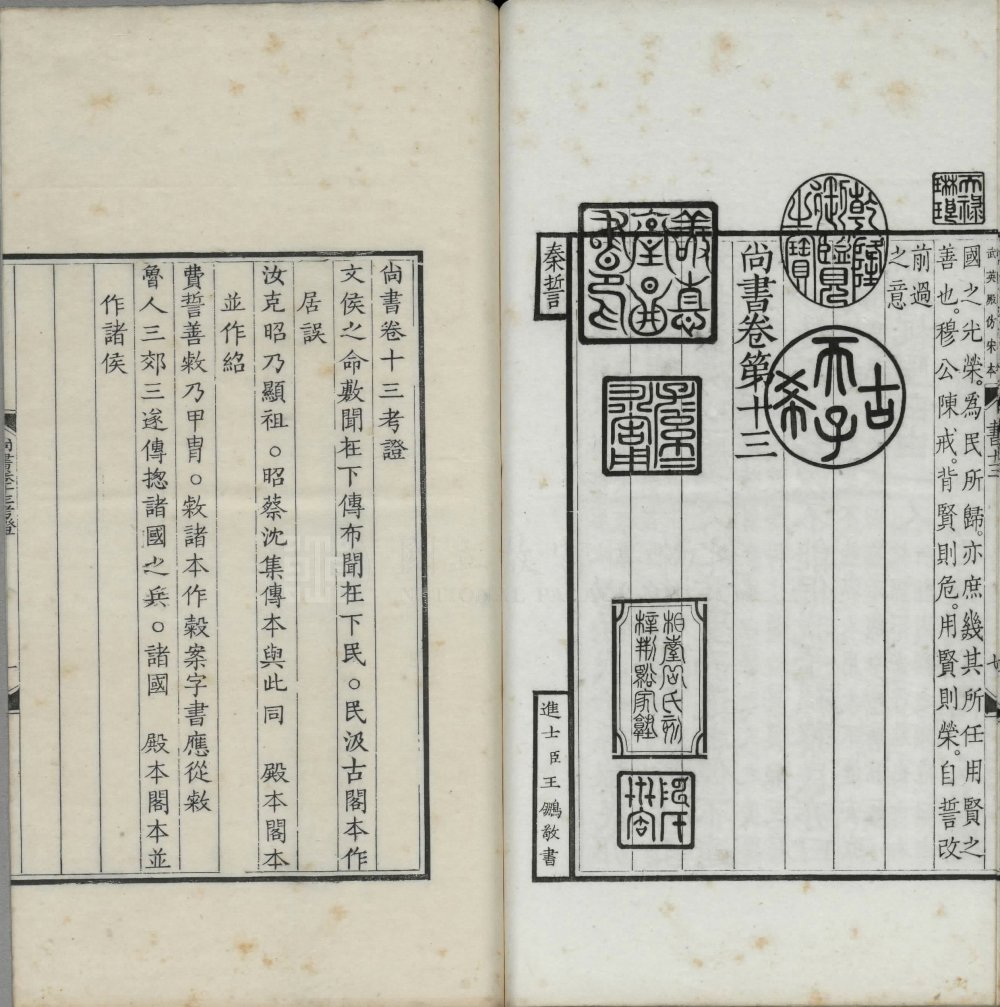 武英殿仿宋本
國之光榮。為民所歸。亦庶幾其所任用賢之
善也。穆公陳戒。背賢則危。用賢則榮。自誓改
前過
之意
尚書卷第十三
天祿
琳琅
乾隆
御覽
之寶
古
天子
希
相臺岳氏刻
梓荊谿家塾
秦誓
進士臣王鵬敬書
尚書卷十三考證
文侯之命敷聞在下傳布聞在下民。民汲古閣本作
居誤
汝克昭乃顯祖。昭蔡沈集傳本與此同 殿本閣本
並作紹
費誓善敹乃甲胄。敹諸本作穀案字書應從敹
魯人三郊三遂傳揔諸國之兵。諸國 殿本閣本並
作諸侯
尚書卷十三考證
一